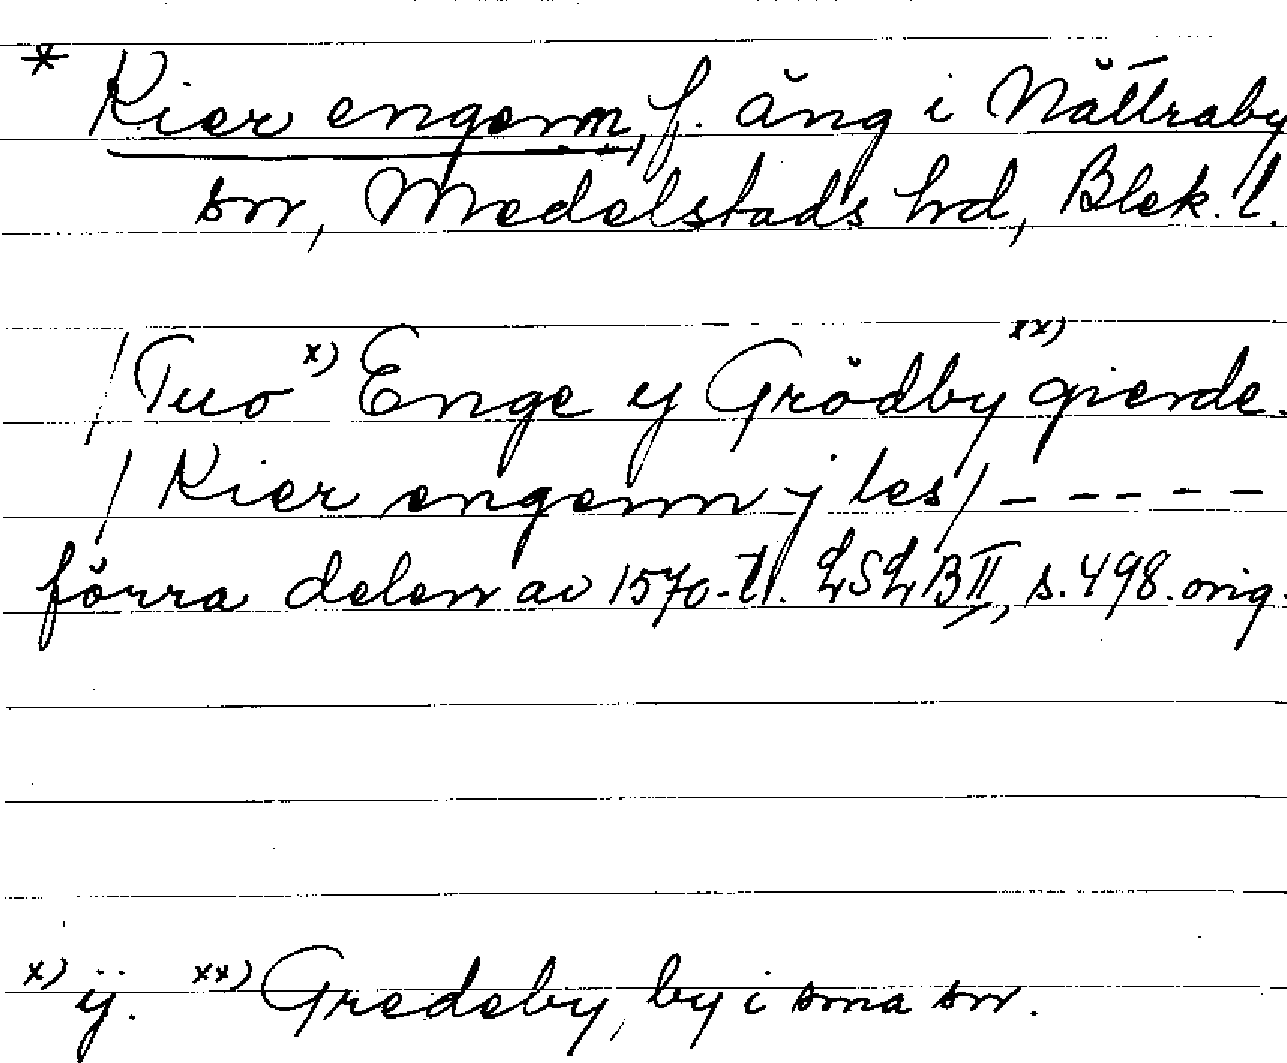 * Kier engenn, f. äng i Nättraby
sn, Medelstads hd, Blek. l.
/ Tuo x) Enge y Grödby xx) gierde.
/ Kier engenn j les / - - - - -
förra delen av 1570-t. LSLB II, s. 498. orig.
x) ÿ. xx) Gredeby, by i sma sn.